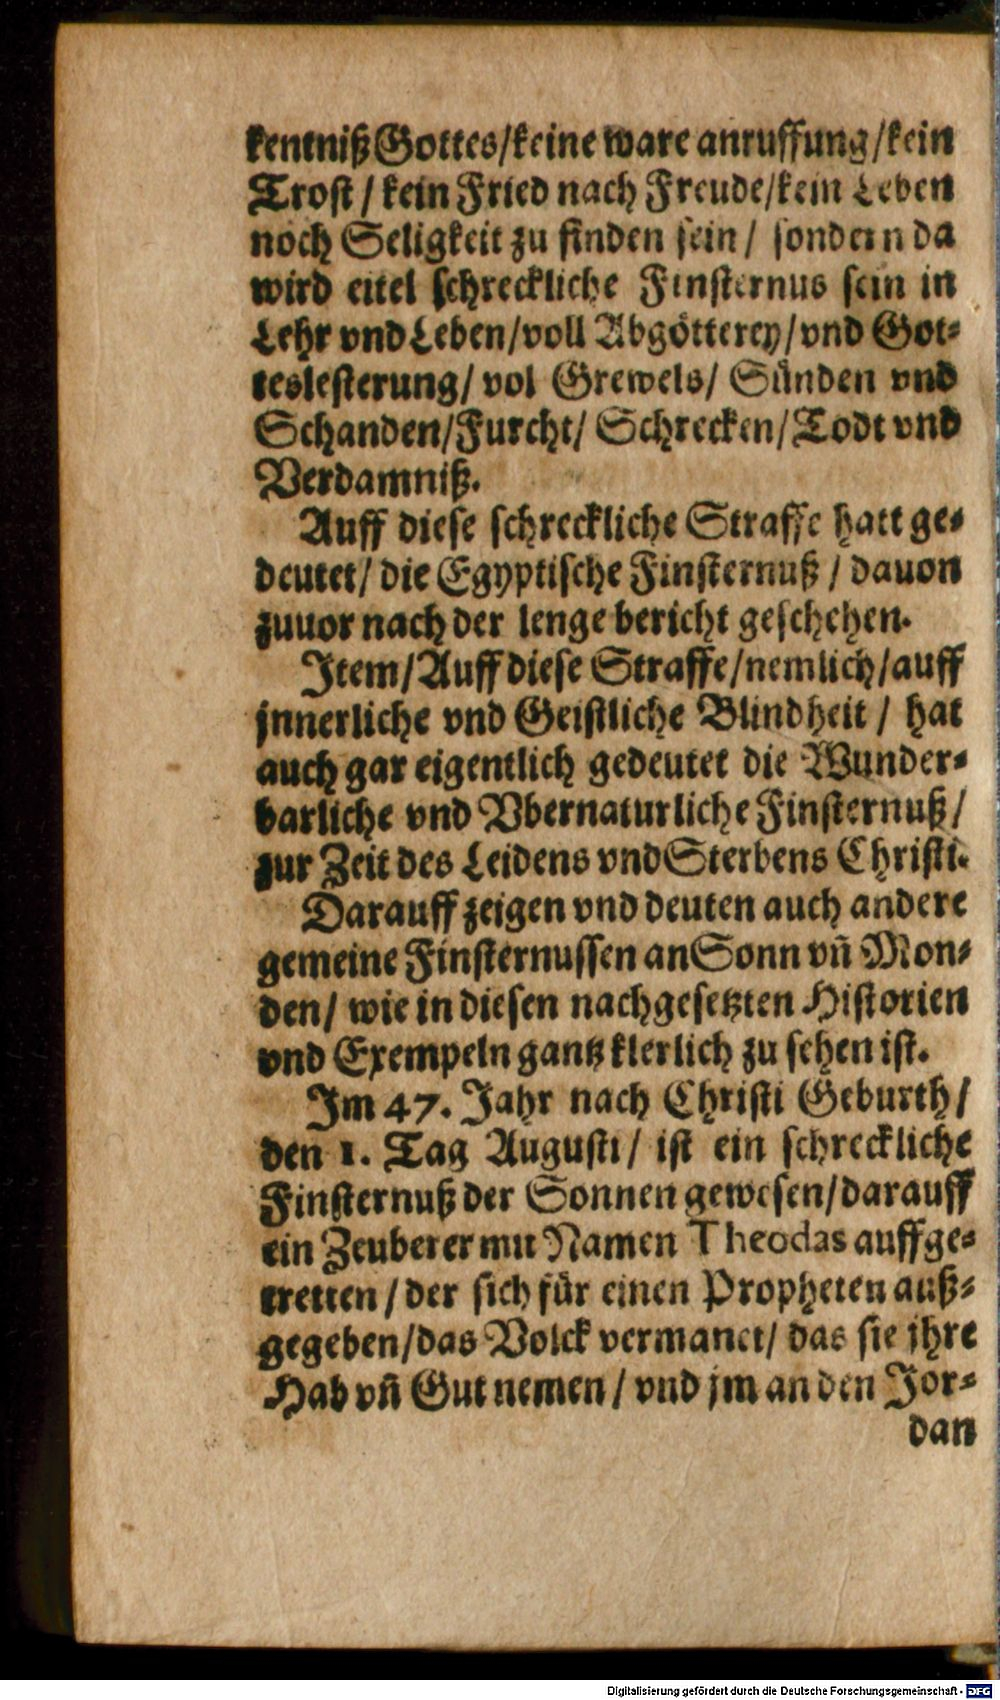 kentniß Gottes/keine ware anruffung/kein
Trost / kein Fried nach Freude/kein Leben
noch Seligkeit zu finden sein / sondern da
wird eitel schreckliche Finsternus sein in
Lehr vnd Leben/voll Abgötterey/vnd Got-
teslesterung/ vol Grewels/ Sünden vnd
Schanden/Furcht/ Schrecken/Todt vnd
Verdamniß.
Auff diese schreckliche Straffe hatt ge-
deutet/ die Egyptische Finsternuß / dauon
zuuor nach der lenge bericht geschehen.
Item/Auff diese Straffe/nemlich/auff
jnnerliche vnd Geistliche Blindheit / hat
auch gar eigentlich gedeutet die Wunder-
barliche vnd Vbernaturliche Finsternuß/
zur Zeit des Leidens vnd Sterbens Christi.
Darauff zeigen vnd deuten auch andere
gemeine Finsternussen an Sonn vñ Mon-
den/ wie in diesen nachgesetzten Historien
vnd Exempeln gantz klerlich zu sehen ist.
Im 47. Jahr nach Christi Geburth/
den 1. Tag Augusti/ ist ein schreckliche
Finsternuß der Sonnen gewesen/darauff
ein Zeuberer mit Namen Theodas auffge-
tretten / der sich für einen Propheten auß-
gegeben/das Volck vermanet/ das sie jhre
Hab vñ Gut nemen / vnd jm an den Jor-
dan
Digitalisierung gefördert durch die Deutsche Forschungsgemeinschaft - DFG